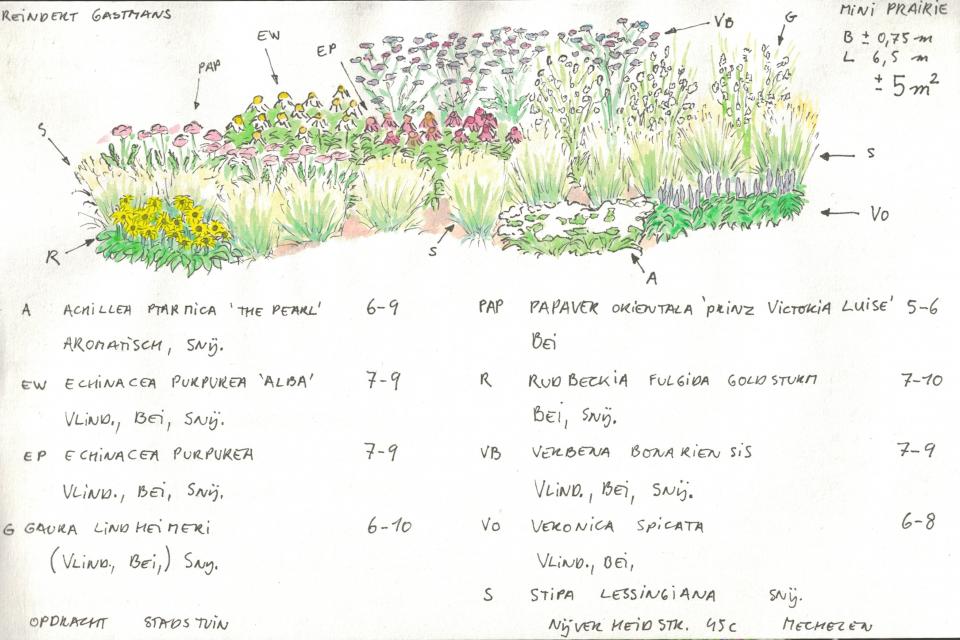 REINDERT GASTMANS
MINI PRAIRIE
B ± 0,75 m
L 6,5 m
± 5 m²
VB
G
EW
EP
PAP
S
S
VO
R
S
A
A ACHILLEA PTARMICA 'THE PEARL' 6-9
AROMATISCH, SNIJ.
EW ECHINACEA PURPUREA 'ALBA' 7-9
VLIND., BEI, SNIJ.
EP ECHINACEA PURPUREA 7-9
VLIND., BEI, SNIJ.
G GAURA LINDHEIMERI 6-10
(VLIND., BEI,) SNIJ.
PAP PAPAVER ORIENTALA 'PRINZ VICTORIA LUISE' 5-6
BEI
R RUDBECKIA FULGIDA GOLDSTURM 7-10
BEI, SNIJ.
VB VERBENA BONARIENSIS 7-9
VLIND., BEI, SNIJ.
VO VERONICA SPICATA 6-8
VLIND., BEI,
S STIPA LESSINGIANA SNIJ.
OPDRACHT STADSTUIN
NIJVERHEIDSTR. 45C MECHELEN